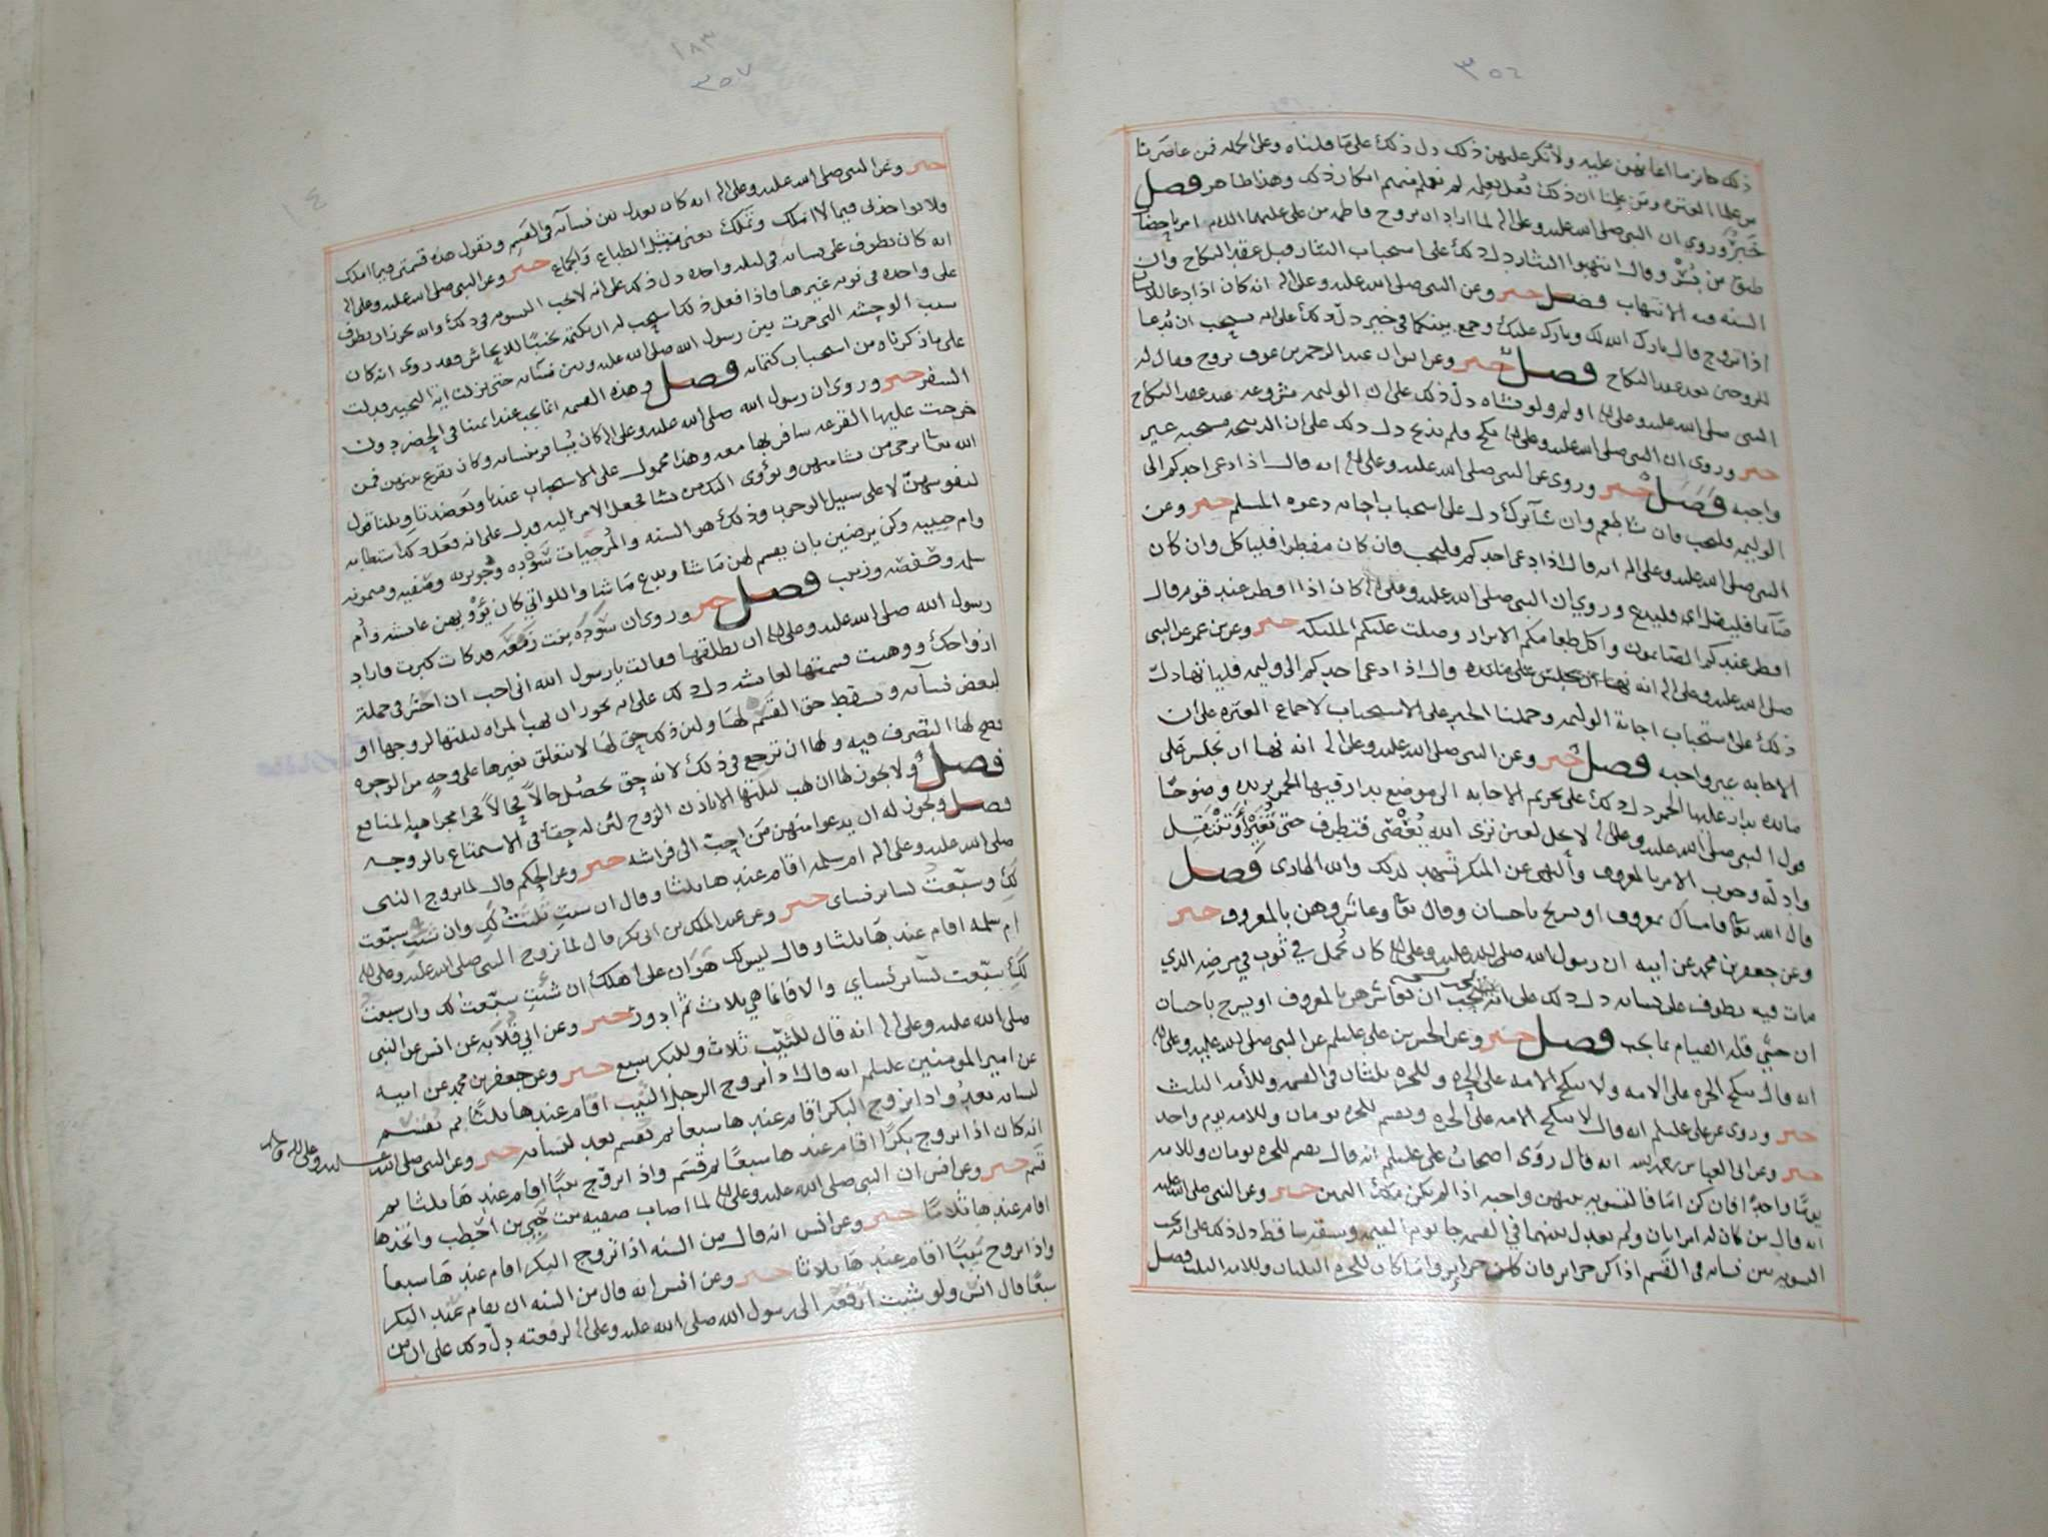 ٣٥٦
ذلك جائز ما اعابهن عليه ولانكر عليهن ذلك دل ذلك على ما قلناه وعلى الجمله فمن عاصرنا
من علما العتره ومن علمنا ان ذلك فعل لعلمه لم نعلم منهم انكار ذلك وهذا ظاهر فصل
خبر وروي ان النبي صلى الله عليه وعلى اله لما اراد ان يزوج فاطمه من علي عليهما السلام امرنا
طبق من بسر وقال انتهبوا النثار دل ذلك على استحباب النثار قبل عقد النكاح وان
السنه فيه الانتهاب فصل خبر وعن النبي صلى الله عليه وعلى اله انه كان اذا دعا للانسان
اذا تزوج قال بارك الله لك وبارك عليك وجمع بينكما في خير دل ذلك على انه يستحب ان يدعا
للزوجين بعد عقد النكاح فصل خبر وعن انس ان عبد الرحمن بن عوف تزوج فقال له
النبي صلى الله عليه وعلى اله اولم ولو بشاه دل ذلك على ان الوليمه مشروعه عند عقد النكاح
خبر وروي ان النبي صلى الله عليه وعلى اله نكح ولم يذبح دل ذلك على ان الذبيحه مستحبه غير
واجبه فصل خبر وروي عن النبي صلى الله عليه وعلى اله انه قال اذا دعي احدكم الى
الوليمه فليجب فان شا طعم وان شا ترك دل على استحباب اجابه دعوه المسلم خبر وعن
النبي صلى الله عليه وعلى اله انه قال اذا دعي احدكم فليجب فان كان مفطرا فلياكل وان كان
صائما فليصل اي فليدع وروي ان النبي صلى الله عليه وعلى اله كان اذا افطر عند قوم قال
افطر عندكم الصايمون واكل طعامكم الابرار وصلت عليكم الملائكه خبر وعن بن عمر عن النبي
صلى الله عليه وعلى اله انه قال اذا دعي احدكم الى وليمه فلياتها دل
ذلك على استحباب اجابة الوليمه وحملنا الخبر على الاستحباب لاجماع العتره على ان
الاجابه غير واجبه فصل خبر وعن النبي صلى الله عليه وعلى اله انه نها ان نجلس على
مائده يدار عليها الخمر دل ذلك على تحريم الاجابه الى موضع يدار فيها الخمر يزيده وضوحا
قول النبي صلى الله عليه وعلى اله لا يحل لعين ترى الله يعصى فتطرف حتى تغير او تنتقل
وادلة وجوب الامر بالمعروف والنهي عن المنكر تشهد لذلك والله الهادي فصل
قال الله تعالى فامساك بمعروف او تسريح باحسان وقال تعالى وعاشروهن بالمعروف خبر
وعن جعفر بن محمد عن ابيه ان رسول الله صلى الله عليه وعلى اله كان يحمل في ثوب في مرضه الذي
مات فيه يطوف على نسائه دل ذلك على انه يجب ان تعاشر بالمعروف او تسرح باحسان
قله القيام بما يجب فصل خبر وعن الحسن بن علي عليلم عن النبي صلى الله عليه وعلى اله
انه قال تنكح الحره على الامه ولا تنكح الامه على الحره وللحره ثلثان في القسمه وللامه الثلث
خبر وروي عن علي عليلم انه قال لا تنكح الامه على الحره ويقسم للحره يومان وللامه يوم واحد
خبر وعن ابي العباس رحمه الله انه قال روى اصحابنا عن علي عليلم انه قال يقسم للحره يومان وللامه
يوما واحدا فان كن امآ فالتسويه بينهن واجبه اذا لم يكن ملك اليمين خبر وعن النبي صلى الله عليه
انه قال من كان له امراتان ولم يعدل بينهما في القسمه جا يوم القيمه وشقه ساقط دل ذلك على انه يجب
التسويه بين نسائه في القسم اذا كن حرائر فان كان حرائر وامآ كان للحره الثلثان وللامه الثلث فصل
١٨٣
٣٥٧
خبر وعن النبي صلى الله عليه وعلى اله انه كان يعدل بين نسآئه في القسم ويقول هذه قسمتي فيما املك
ولا تواخذني فيما لا املك وتملك يعني ميل الطباع والجماع خبر وعن النبي صلى الله عليه وعلى اله
انه كان يطوف على نسائه في ليله واحده دل ذلك على انه لا تجب التسويه في ذلك وانه يجوز ان يطوف
على واحده في نوبه غيرها فاذا فعل ذلك استحب له ان يكتمه تجنبا للايحاش فقد روي انه كان
سبب الوحشه التي جرت بين رسول الله صلى الله عليه وبين نسائه حتى نزلت ايه التخيير فدلت
على ما ذكرناه من استحباب كتمانه فصل وهذه القسمه انما تجب عند ائمتنا في الحضر دون
السفر خبر وروي ان رسول الله صلى الله عليه وعلى اله كان يسافر بنسائه وكان يقرع بينهن فمن
خرجت عليها القرعه سافر بها معه وهذا محمول على الاستحباب عندنا ويعضد تاويلنا قول
الله تعالى ترجي من تشا منهن وتؤوي اليك من تشا فجعل الامر اليه ودل على انه فعل ذلك استطابه
لنفوسهن لا على سبيل الوجوب وذلك هو السنه والمرجيات سوده وجويريه وصفيه وميمونه
وام حبيبه وكن يرضين بان يقسم لهن ما شا ويدع ما شا واللواتي كان يؤويهن عائشه وام
سلمه وحفصه وزينب فصل خبر وروي ان سوده بنت زمعه قد كانت كبرت فاراد
رسول الله صلى الله عليه وعلى اله ان يطلقها فقالت يا رسول الله اني احب ان احشر في جملة
ازواجك ووهبت قسمتها لعائشه دل ذلك على انه يجوز ان تهب المراه ليلتها لزوجها او
لبعض نسآئه وتسقط حق القسم لها ولان ذلك حق لها لا يتعلق بغيرها على وجه من الوجوه
فصح لها التصرف فيه ولها ان ترجع في ذلك لانه حق يحصل حالا فحالا فجرا مجرا هبه المنافع
فصل ولا يجوز لها ان تهب ليلتها الا باذن الزوج لئن له حقا في الاستمتاع بالزوجه
فصل ويجوز له ان يدعوا منهن من احب الى فراشه خبر وعن الحكم قال لما تزوج النبي
صلى الله عليه وعلى اله ام سلمه اقام عندها ثلثا وقال ان شئت ثلثت لك وان شئت سبعت
لك وسبعت لسائر نساي خبر وعن عبد الملك بن ابي بكر قال لما تزوج النبي صلى الله عليه وعلى اله
ام سلمه اقام عندها ثلثا وقال ليس لك هوان على اهلك ان شئت سبعت لك وان سبعت
لك سبعت لسائر نساي والا فانما هي ثلاث ثم ادور خبر وعن ابي قلابه عن انس عن النبي
صلى الله عليه وعلى اله انه قال للثيب ثلاث وللبكر سبع خبر وعن جعفر بن محمد عن ابيه
عن امير المومنين عليلم انه قال اذا تزوج الرجل الثيب اقام عندها ثلثا ثم يقسم
لنسائه بعد واذا تزوج البكر اقام عندها سبعا ثم يقسم بعد لنسائه خبر وعن النبي صلى الله عليه وعلى اله
انه كان اذا تزوج بكرا اقام عندها سبعا ثم قسم واذا تزوج ثيبا اقام عندها ثلثا ثم
قسم خبر وعن انس ان النبي صلى الله عليه وعلى اله لما اصاب صفيه بنت حيي بن اخطب واتخذها
اقام عندها ثلاثا خبر وعن انس انه قال من السنه اذا تزوج البكر اقام عندها سبعا
واذا تزوج ثيبا اقام عندها ثلاثا خبر وعن انس انه قال من السنه ان يقام عند البكر
سبعا قال انس ولو شئت ان ارفعه الى رسول الله صلى الله عليه وعلى اله لرفعته دل ذلك على ان من